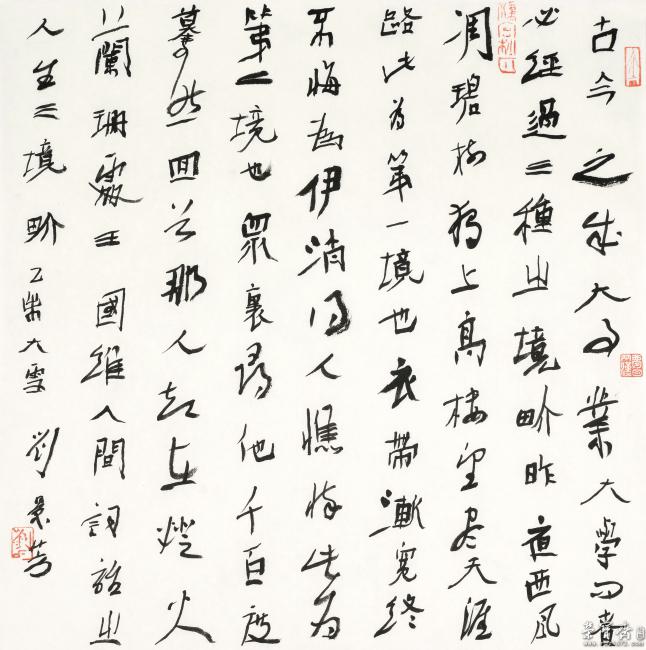 古今之成大事業大學問者
必經過三種之境畍昨夜西風
凋碧樹獨上高樓望盡天涯
路此為第一境也衣帶漸寬終
不悔為伊消得人憔悴此為
第二境也眾裏尋他千百度
驀然回首那人却在燈火
闌珊處王國維人間詞話之
人生三境畍 乙大雪 劉景